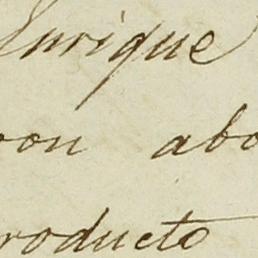 Enrique
ron abo
roducto